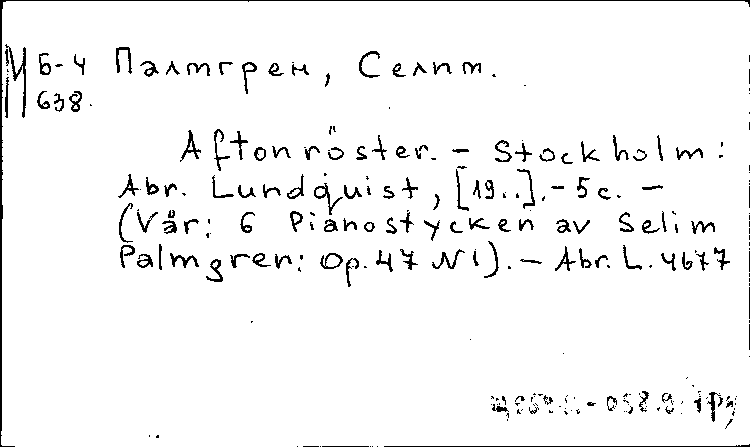 М Б-4 Палмгрен, Селим.
638.
Aftonröster. – Stockholm:
Abr. Lundquist, [19..]. – 5 с. –
(Vår: 6 Pianostycken av Selim
Palmgren: Op. 47 N1). – Abr. L. 4677